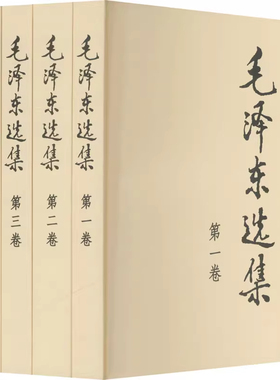 毛泽东选集
第三卷
毛泽东选集
第二卷
毛泽东选集
第一卷
毛泽东选集
第一卷